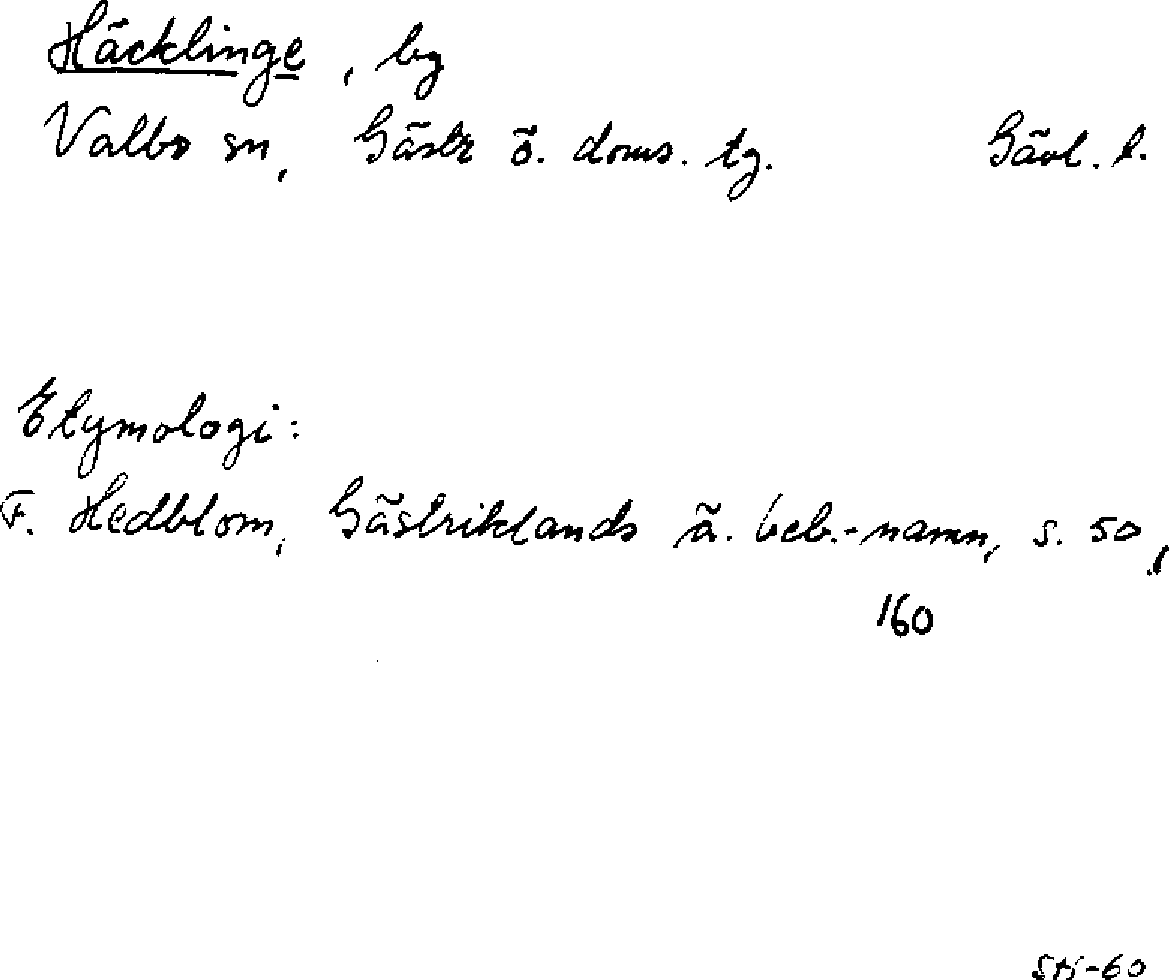 Häcklinge, by
Valbo sn, Gästr ö. doms. tg. Gävl. l.
Etymologi:
F. Hedblom, Gästriklands ä. beb.-namn, s. 50,
160